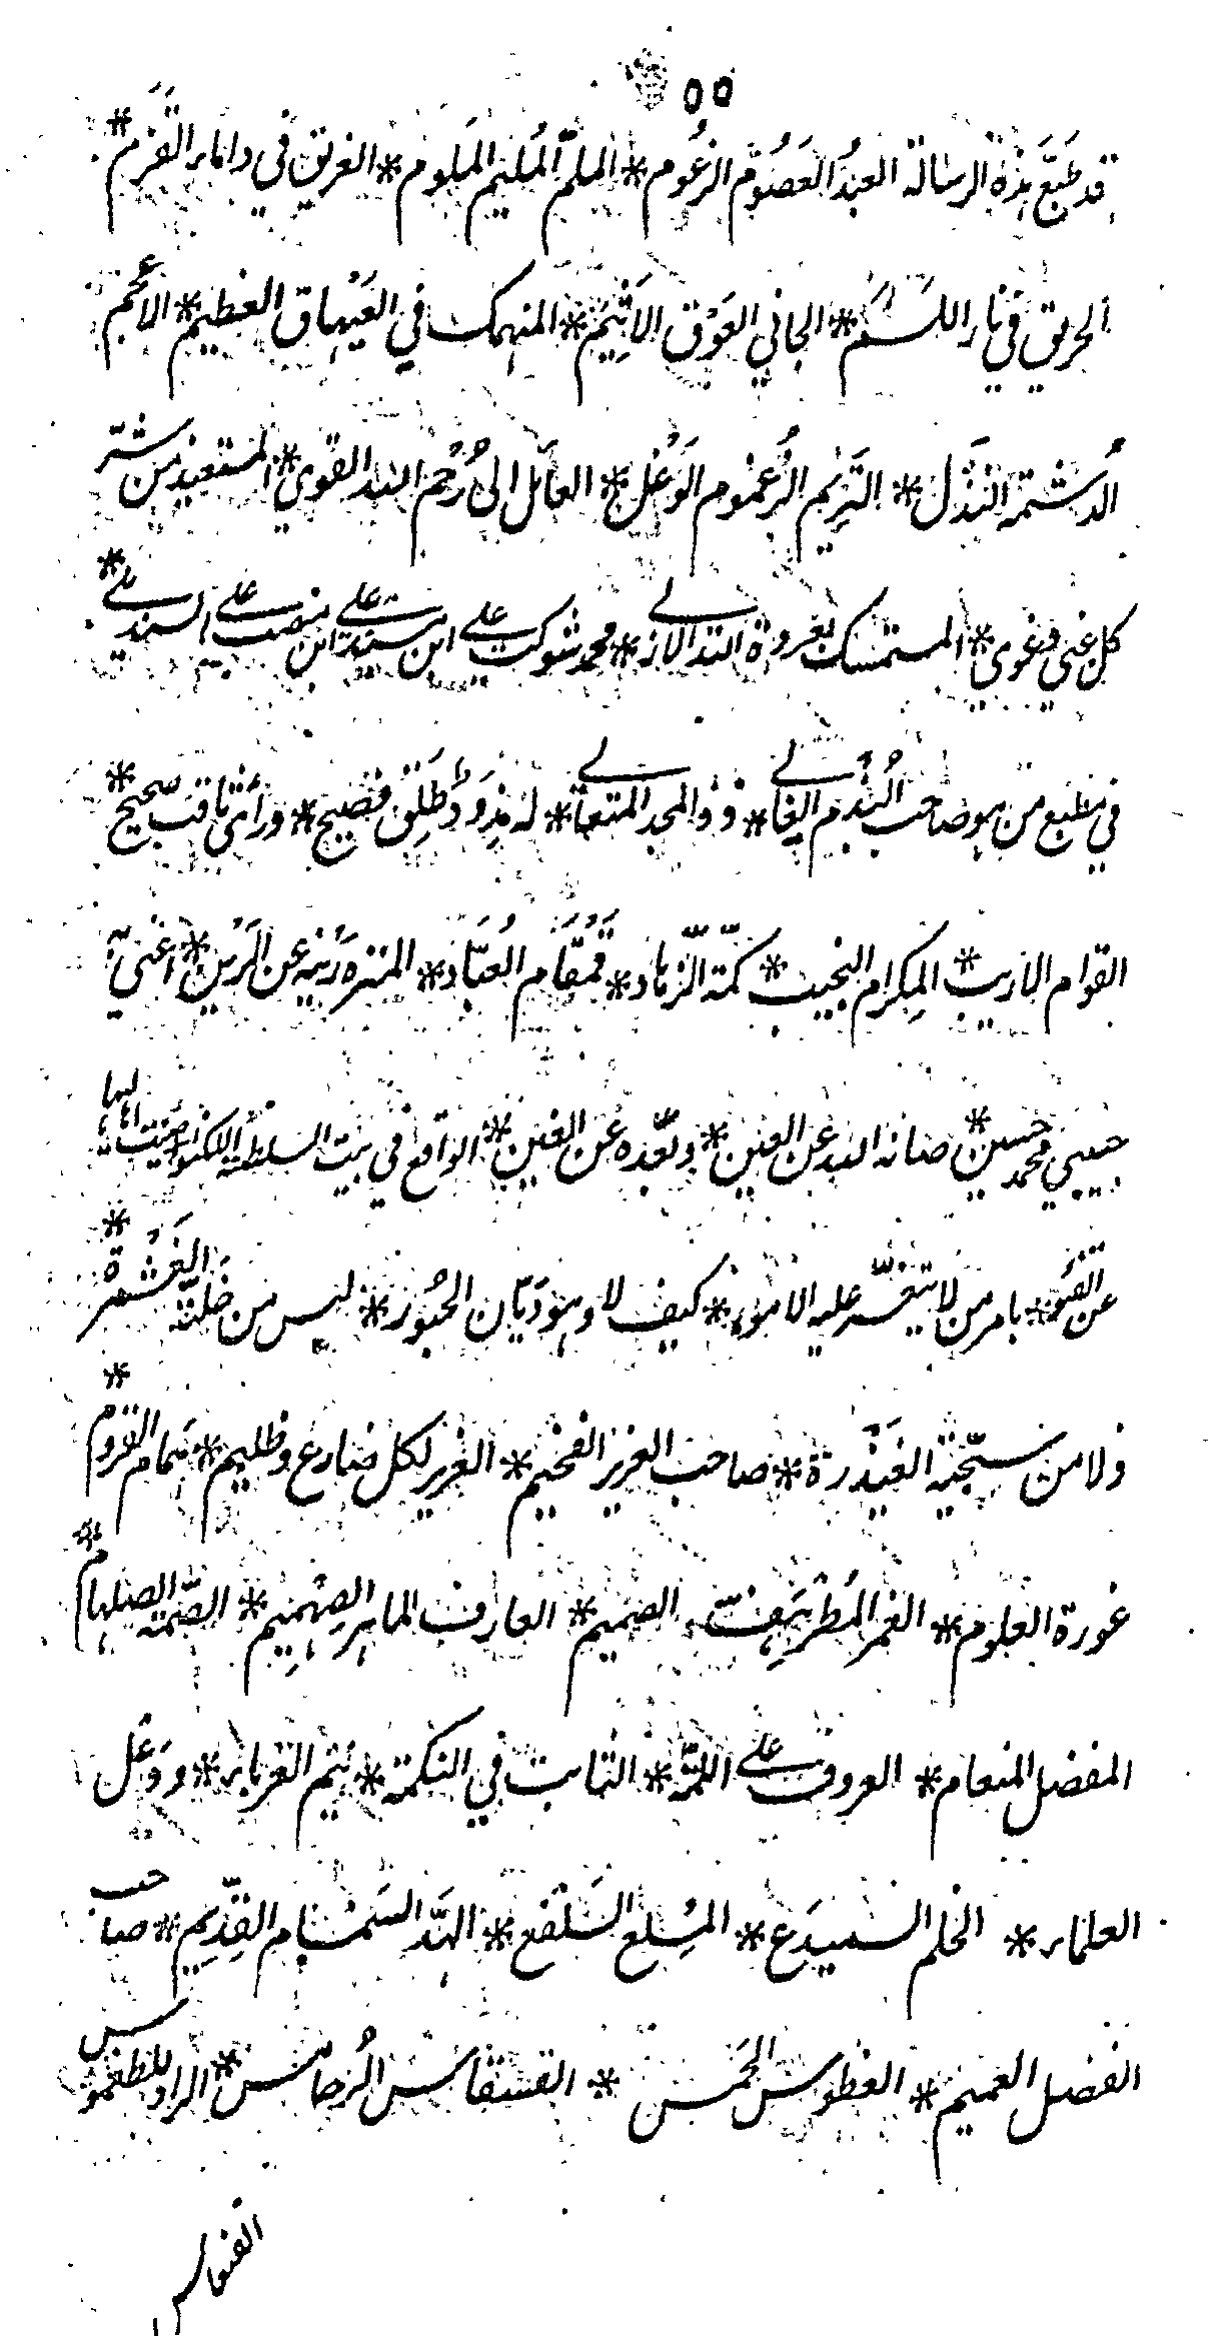 ٥٥
قد طبع هذه الرسالة العبد العصوم الزعوم * الملم المليم الملوم * الغريق في داماء القرم *
الحريق في نار اللسم * الجاني العوق الاثيم * المنهمك في العيهاق العظيم * الاعجم
الدشمة النذل * التريم الزعموم الوغل * العامل الى رحم الله القوي * المستعيذ من شر
كل غبي وغوي * المستمسك بعروة الله الازلي * محمد شوكت علي ابن سيد علي ابن منصب علي السنديلي *
في مطبع من هو صاحب الندم الغالي * وذو المجد المتعالي * له مذود طلق فصيح * وراي ثاقب صحيح *
القوام الاريب * المكرام النجيب * كمة الزهاد * قمقام العباد * المنزه رينه عن الرين * اعني به
حبيبي محمد حسين * صانه الله عن العين * وبعده عن الغين * الواقع في بيت السلطنة لكنو صينت اهاليها
عن * بامر من لا يتعسر عليه الامور * كيف لا وهو ديان الحبور * ليس من خلته الغشمرة *
ولا من سجيته الغيذرة * صاحب العزيز الفخيم * الغرير لكل ضارع وظليم * همام القروم *
غورة العلوم * الغمر المطرهف الصميم * العارف الماهر الصهميم * الصمة الصلهام *
المفضل المنعام * العروف على اللمة * الثابت في النكمة * يتم الغرباء * ووعل
العلماء * الخلم السميدع * المسلع السلفع * الهند السمسام القديم * صاحب
الفضل العميم * الغطوس الحمس * القسقاس الرصامس * الراد للطغموس